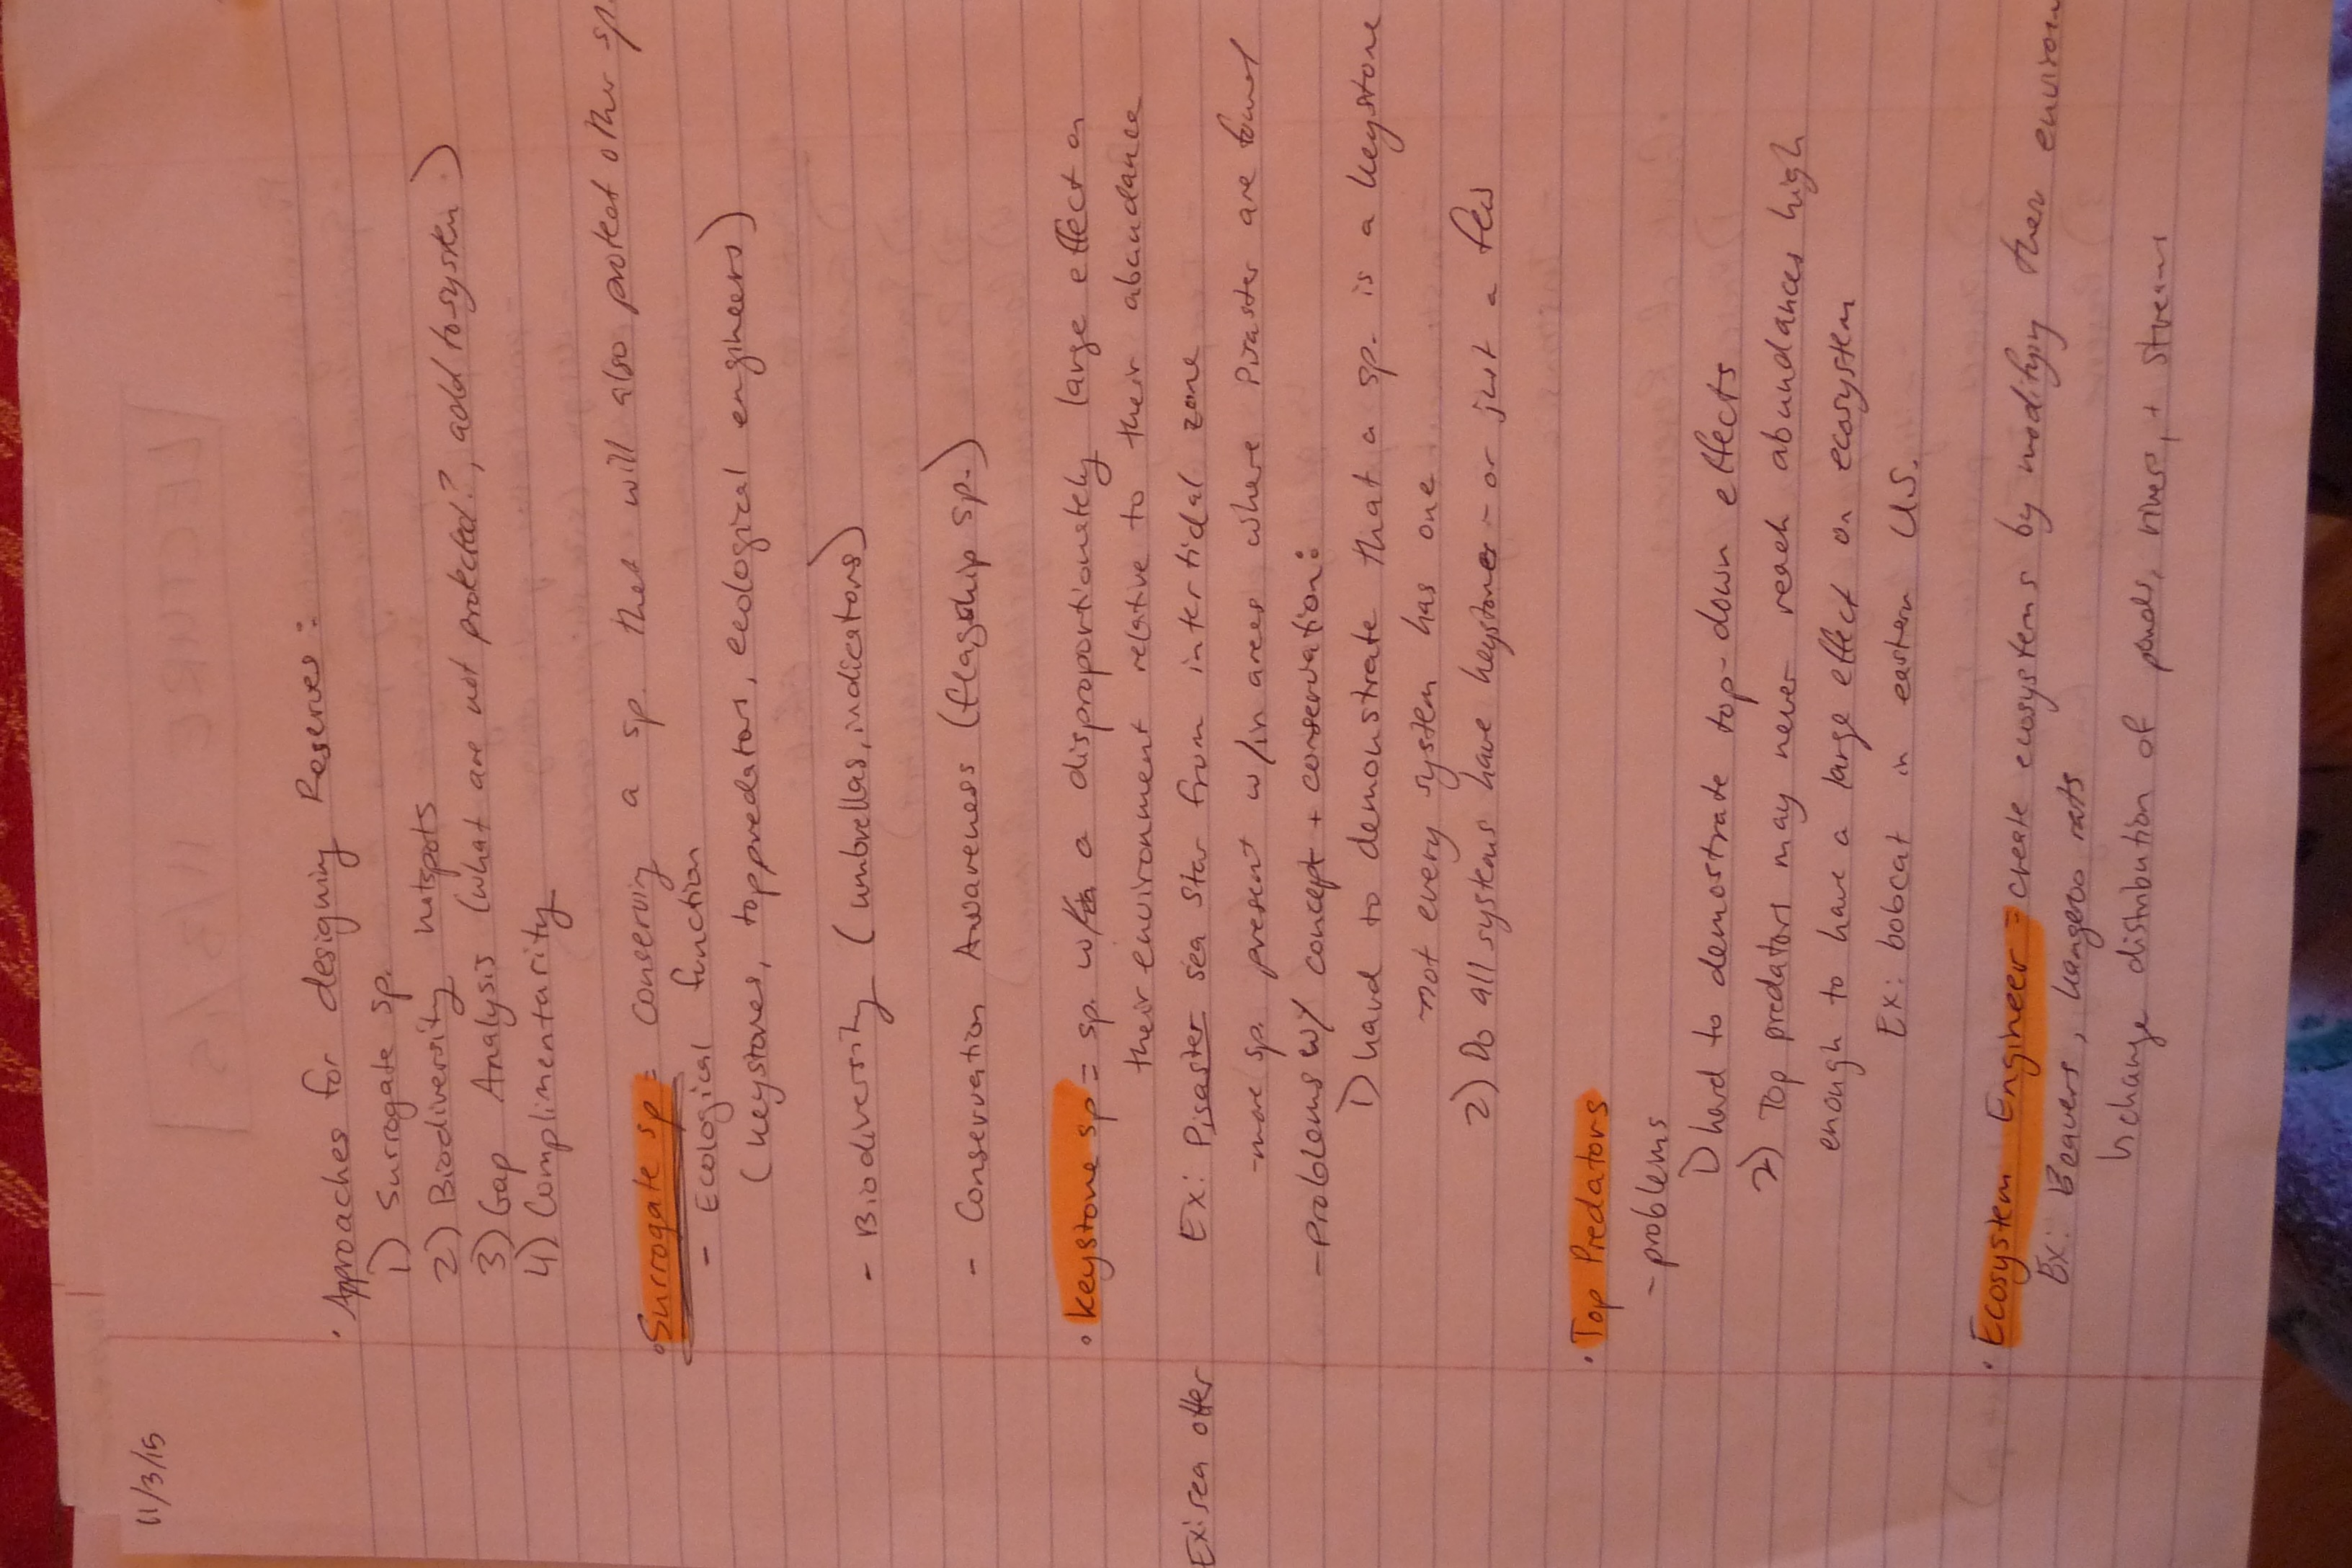 11/3/15
• Approaches for designing Reserves:
1) Surrogate sp.
2) Biodiversity hotspots
3) Gap Analysis (what are not protected?, add to system)
4) Complimentarity
• Surrogate sp = conserving a sp. that will also protect other sp.
- Ecological function
(keystones, top predators, ecological engineers)
- Biodiversity (umbrellas, indicators)
- Conservation Awareness (flagship sp.)
• Keystone sp = sp. w/ a disproportionately large effect on
their environment relative to their abundance
Ex: sea otter
Ex: Pisaster sea star from intertidal zone
- more sp. present w/in areas where Pisaster are found
- Problems w/ concept + conservation:
1) hard to demonstrate that a sp. is a keystone
not every system has one
2) Do all systems have keystones - or just a few
• Top Predators
- problems
1) hard to demostrate top-down effects
2) Top predators may never reach abundances high
enough to have a large effect on ecosystem
Ex: bobcat in eastern U.S.
• Ecosystem Engineer = create ecosystems by modifying their environ
Ex: Beavers, kangeroo rats
↳ change distribution of ponds, rivers, + streams
LECTURE 11/3/15